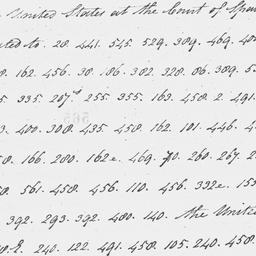 United States at the Court of Spain
ted to. 28. 441. 545. 529. 389. 469. 40
8. 162. 456. 38. 186. 302. 328. 86. 389. 5
5. 335. 287. 255. 355. 163. 458. 2. 491.
3. 400. 308. 435. 458. 162. 101. 446. 4
8. 166. 280. 162e. 469. 70. 260. 267. 2
8. 561. 458. 456. 110. 456. 332e. 153
392. 293. 392. 480. 140. the United
240. 122. 491. 458. 105. 240. 458.